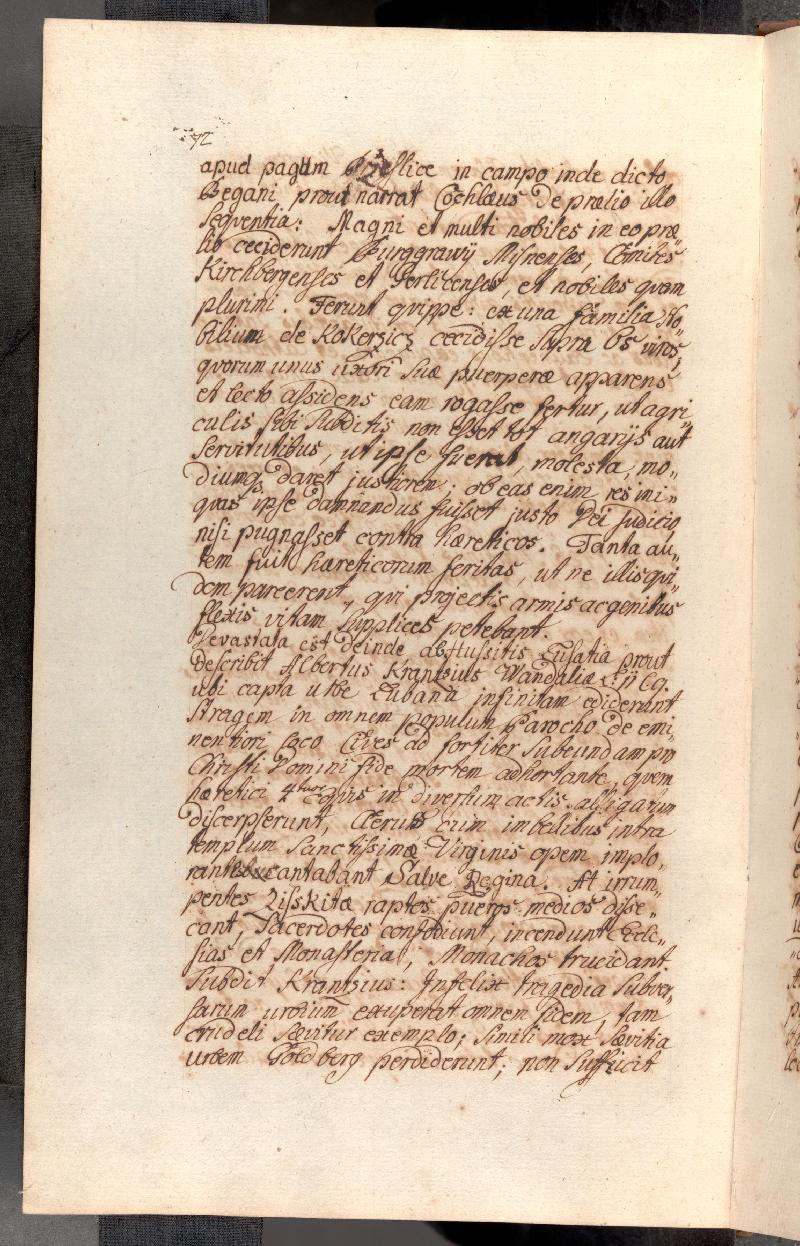 72
apud pagum Przeslice in campo inde dicto
Begani, prout narrat Cochlæus de prælio illo
seqventia: Magni et multi nobiles in eo præ„
lio ceciderunt Burggrawij Misnenses, Comites
Kirchbergenses et Gerlicenses, et nobiles qvam
plurimi. Ferunt qvippe: ex una familia No„
bilium de Kokerzicz cecidisse supra bs viros,
qvorum unus uxori suæ puerperæ apparens
et lecto assidens eam rogasse fertur, ut agri„
culis sibi subditis non esset tot angarijs aut
servitutibus, ut ipse fuerat, molesta, mo„
diumq daret justiorem: ob eas enim res ini„
qvas ipse damnandus fuisset justo Dei judicio
nisi pugnasset contra hæreticos. Tanta au„
tem fuit hæreticorum feritas, ut ne illis qvi„
dem parcerent, qvi projectis armis ac genibus
flexis vitam supplices petebant.
Devastata est deinde ab Hussitis Lusatia prout
describit Albertus Krantzius Wandaliæ L: ij C9.
ubi capta urbe Lubana infinitam ediderunt
stragem in omnem populum Parocho de emi„
nentiori loco Cives ad fortiter subeundam pro
Christi Domini fide mortem adhortante, qvem
hæretici 4tuor eqvis in diversum actis alligatum
discerpserunt, Clerus cum imbellibus intra
templum Sanctissimæ Virginis opem implo„
rantes cantabant Salve Regina. At irrum„
pentes Zisskitæ raptos pueros medios disse„
cant, Sacerdotes confodiunt, incendunt Eccle„
sias et Monasteria, Monachos trucidant.
Subdit Krantzius: Infelix tragedia subver„
sarum urbium exuperat omnem fidem, tam
crudeli sævitur exemplo; simili mox sævitia
urbem Goldberg perdiderunt; non suffficit